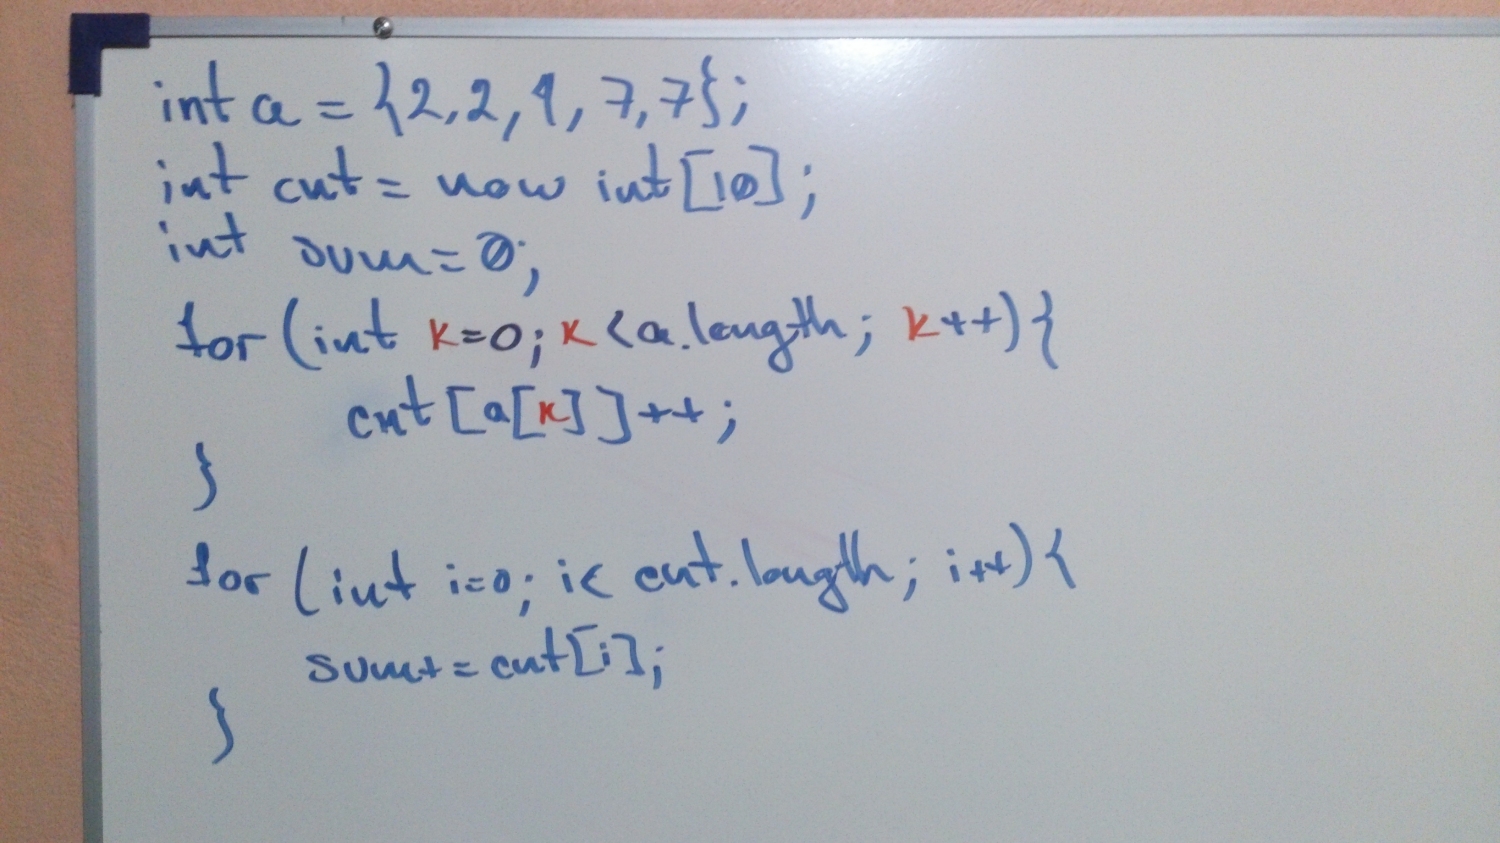 int a = {2,2,1,7,7};
int cnt = new int[10];
int sum=0;
for (int k=0; k<a.length; k++){
cnt[a[k]]++;
}
for (int i=0; i< cnt.length; i++){
sum+=cnt[i];
}